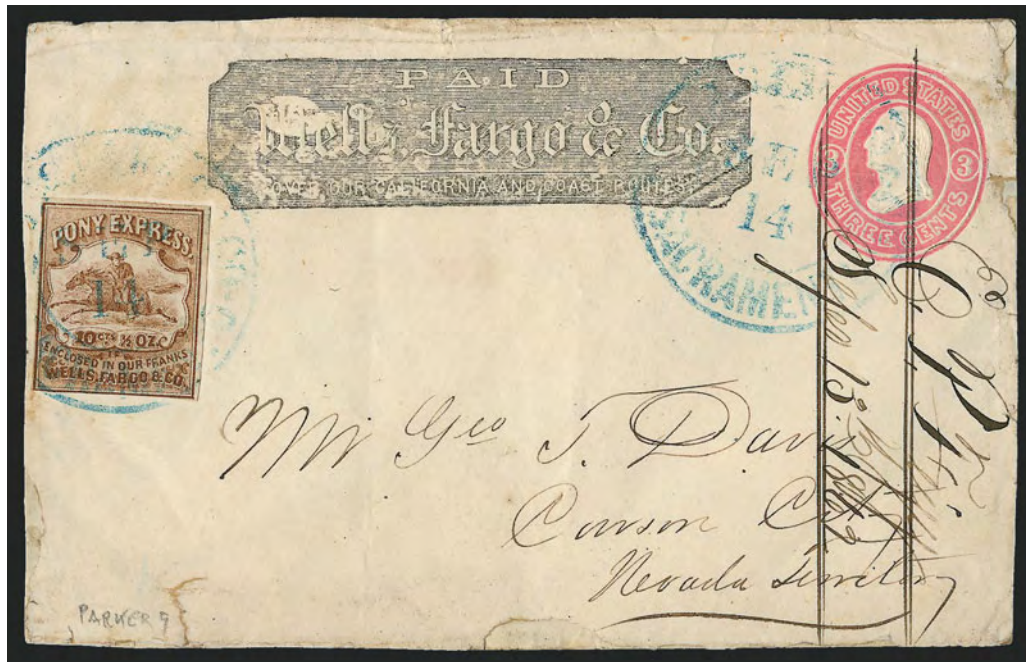 PAID
Wells, Fargo & Co.
OVER OUR CALIFORNIA AND COAST ROUTES
UNITED STATES
3 3
THREE CENTS
14
SACRAMEN
PONY EXPRESS
14
10 CTS ½ OZ.
ENCLOSED IN OUR FRANKS
WELLS, FARGO & CO.
Mr Geo T. Davis
Carson City
Nevada Territory
Sept 13. 1862
PARKER 9